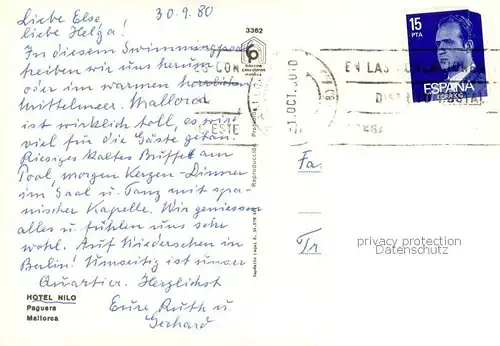 Liebe Else, 30.9.80
liebe Helga!
In diesem Swimmingpool
treiben wir uns herum
oder im warmen herrlichen
Mittelmeer. Mallorca
ist wirklich toll, es wird
viel für die Gäste getan.
Riesiges kaltes Buffet am
Pool, morgen Kerzen-Dinner
im Saal u. Tanz mit spa-
nischer Kapelle. Wir geniessen
alles u. fühlen uns sehr
wohl. Auf Wiedersehen in
Berlin! Umseitig ist unser
Quartier. Herzlichst
Eure Ruth u.
Gerhard
HOTEL NILO
Paguera
Mallorca
3362
15
PTA
ESPAÑA
CORREOS
EN LAS
1 OCT.
ESTE
Fa.
Tr
privacy protection
Datenschutz